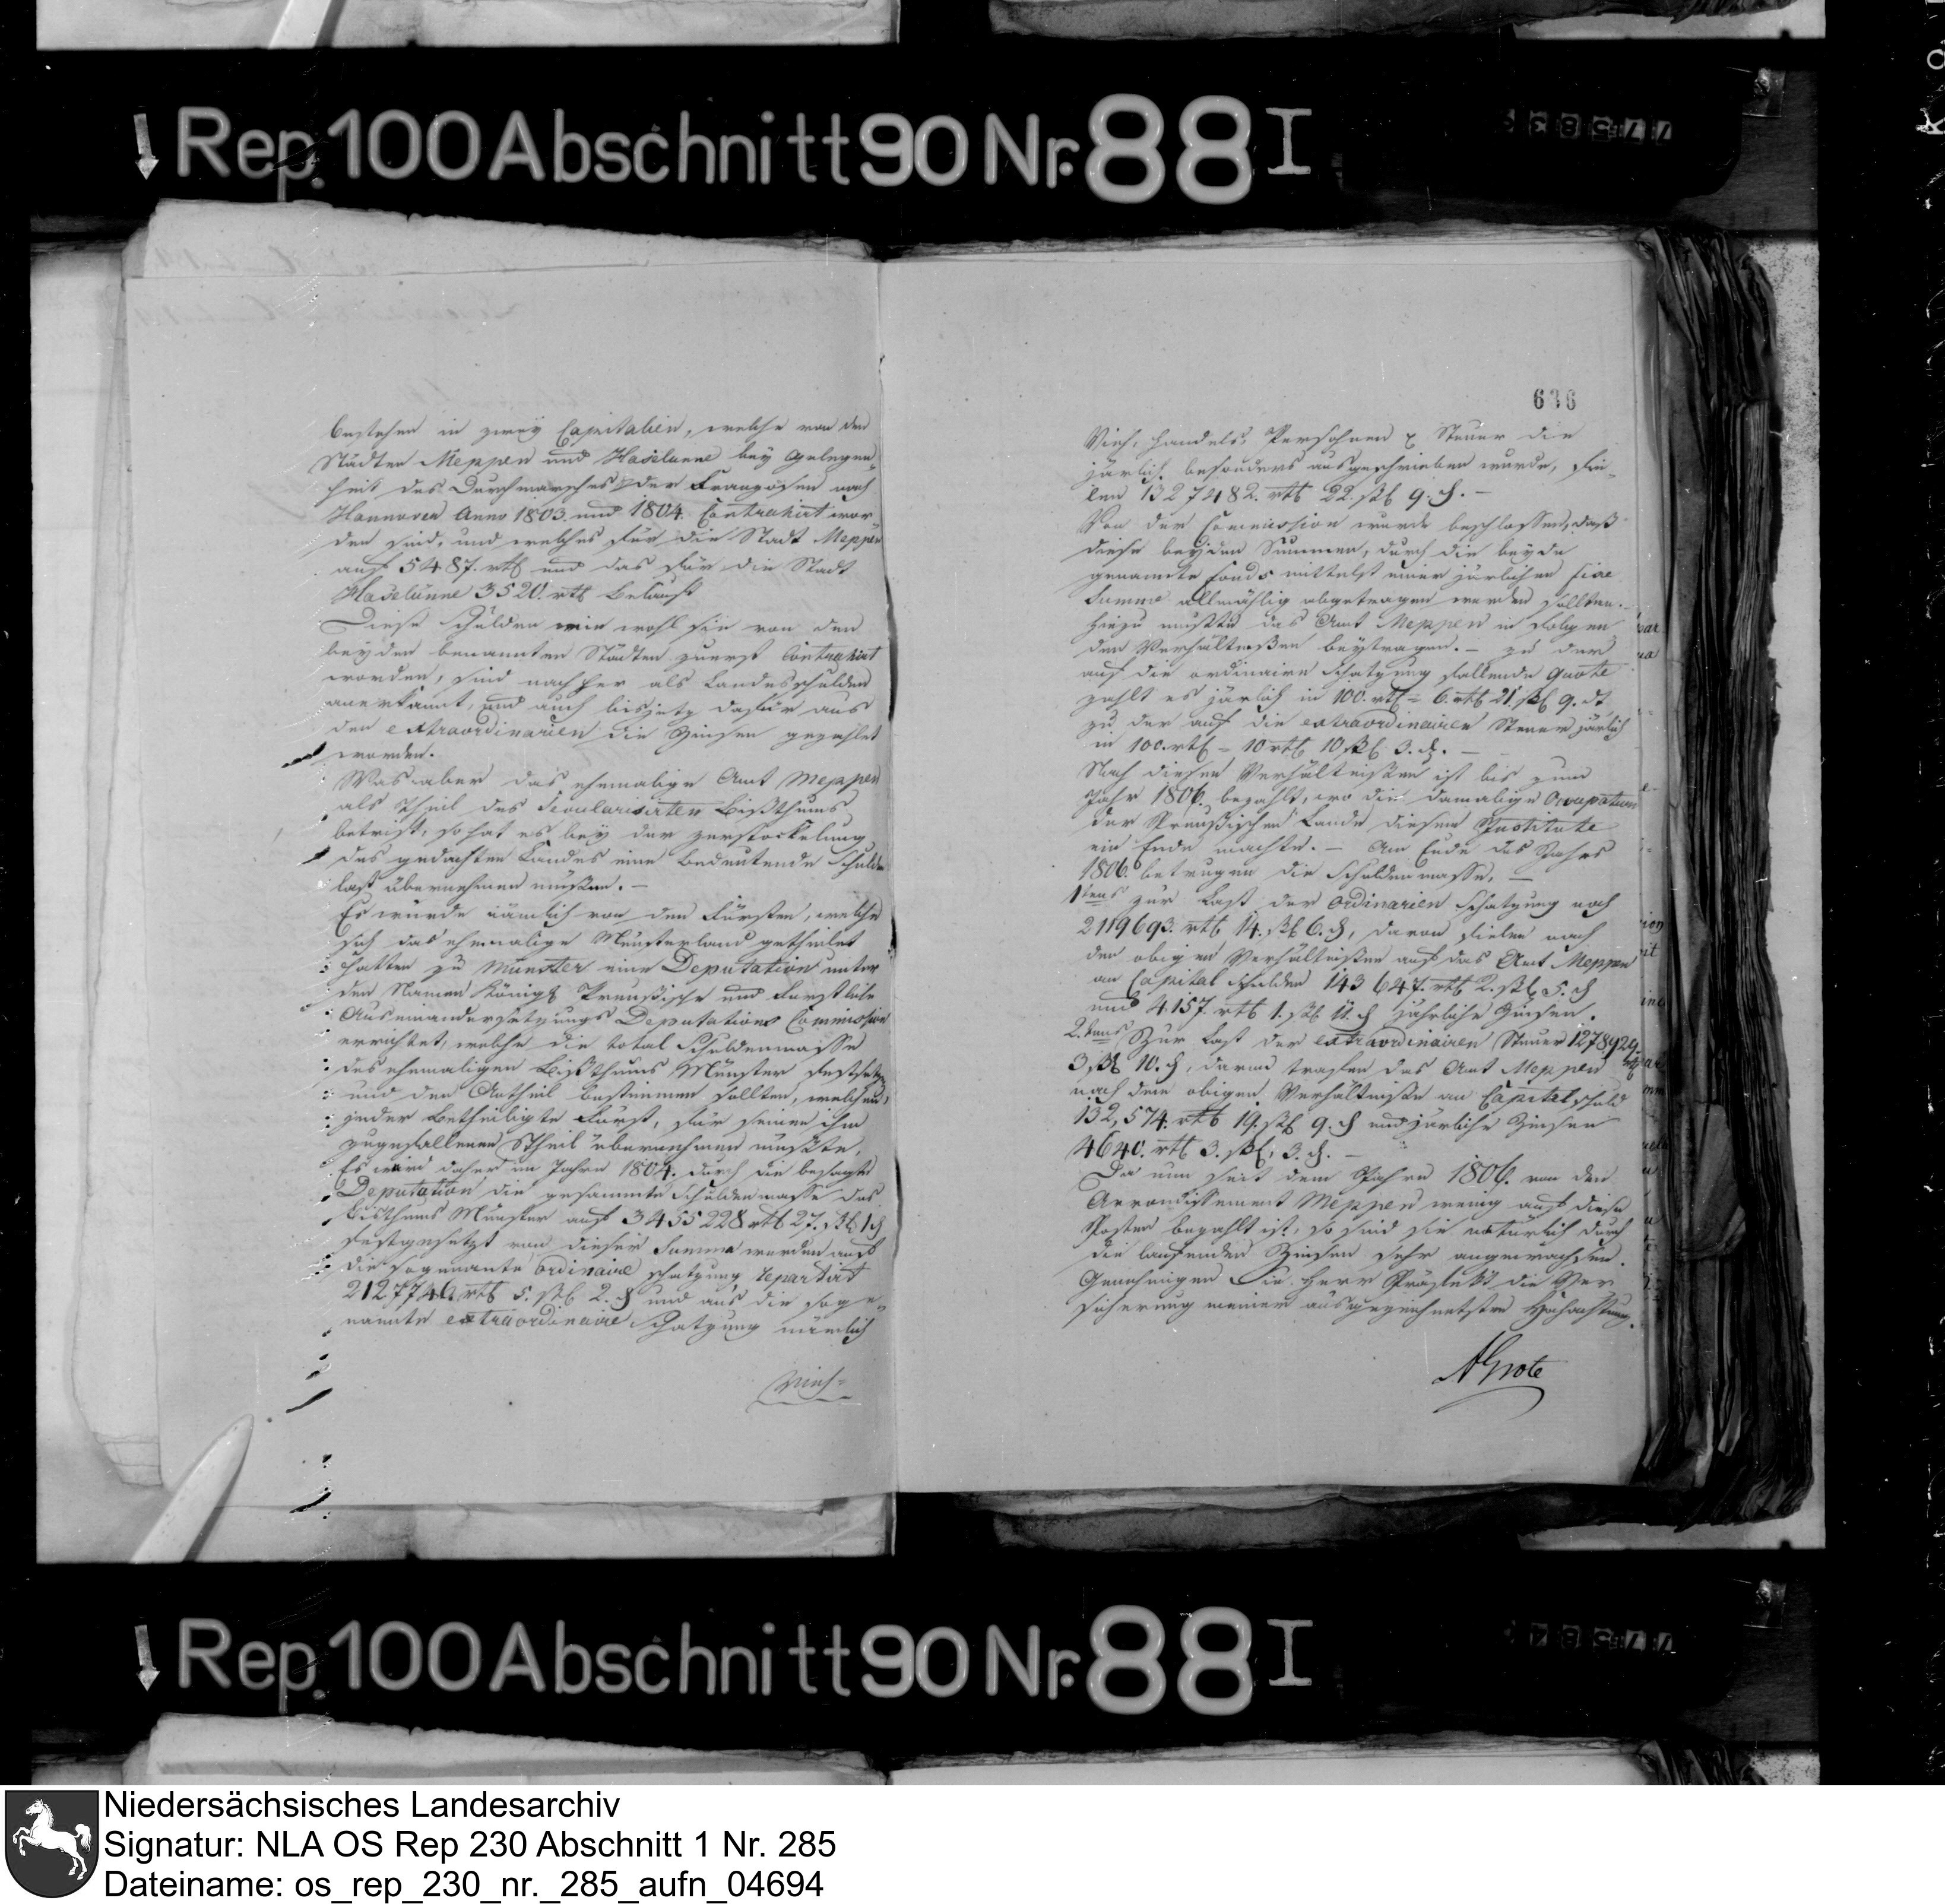 Rep. 100 Abschnitt 90 Nr. 88 I
bestehen in zwey Capitalien, welche von den
Städten Meppen und Haselünne bey Gelegen-
heit des Durchmarsches der Franzosen nach
Hannover Anno 1803 und 1804 Contrahirt wor
den sind, und welches für die Stadt Meppen
auf 5487. rtl und das für die Stadt
Haselünne 3520. rtl beläuft
Diese Schulden wie wohl sie von den
beyden benannten Städten zuerst Contrahirt
worden, sind nachher als Landesschulden
anerkannt, und auch bisjetz dafür aus
den extraordinarien die Zinsen gezahlet
worden.
Was aber das ehemalige Amt Meppen
als Theil des Secularisirten Bißthums
betrift, so hat es bey der zerstückelung
des gedachten Landes eine bedeutende Schulden
last übernehmen müßen. —
Es wurde nämlich von den Fürsten, welche
sich das ehemalige Münsterland getheilet
hatten zu Münster eine Deputation unter
den Namen Königl Preußische und Fürstliche
Auseinandersetzungs Deputations Commission
errichtet, welche die total Schuldenmasse
des ehemaligen Bißthums Münster festsetzen
und den Antheil bestimmen sollten, welchen
jeder betheiligte Fürst, für seinen ihm
zugefallenen Theil übernehmen müßte,
Es wird daher im Jahre 1804. durch die besagte
Deputation die gesammte Schuldenmasse des
Bisthums Münster auf 3455228 rtl 27. ßl 1 d
festgesetzt von dieser Summe wurden auf
die sogenante ordinaire Schatzung repartirt
2127746 rtl 5. ßl 2. d und auf die soge-
nannte extraordinaire Schatzung nämlich
Vieh-
636
Vieh, Handels, Personen Steuer die
järlich besonders ausgeschrieben wurde, fie-
len 1327482. rtl 22. ßl 9. d. —
Von der Commission wurde beschlossen, daß
diese beyden Summen, durch die beyde
genannte Fonds mittelst einer järlichen fixe
Summe allmählig abgetragen werden sollten. —
Hiezu mußte das Amt Meppen in folgen
den Verhältnißen beytragen. — zu der
auf die ordinaire Schatzung fallende Quote
zahlt es järlich in 100. rtl = 6. rtl 21 ßl 9. d,
zu der auf die extraordinairen Steuer järlich
in 100. rtl = 10 rtl 10 ßl 3. d. —
Nach diesen Verhältnißen ist bis zum
Jahr 1806. bezahlt, wo die damalige Occupation
der Preußischen Lande diesem Institute
ein Ende machte. — Am Ende des Jahrs
1806. betrugen die Schuldenmasse, —
1tens zur Last der ordinarien Schatzung noch
2119693. rtl 14. ßl 6. d, davon fielen nach
den obigen Verhältnißen auf das Amt Meppen
an Capital Schulden 143647. rtl 2. ßl 5. d
und 4157. rtl 1. ßl 11. d jährliche Zinsen.
2tens Zur Last der extraordinairen Steuer 1278929. rtl
3 ßl 10. d, davon trafen das Amt Meppen
nach dem obigen Verhältniße an Capital schuld
132,574. rtl 19. ßl 9. d und järliche Zinsen
4640. rtl 3. ßl, 3. d. —
Da nun seit dem Jahre 1806. von den
Arrondissement Meppen wenig auf diese
Posten bezahlt ist, so sind sie natürlich durch
die laufenden Zinsen sehr angewachsen.
Genehmigen Sie Herr Präfekt die Ver
sicherung meiner ausgezeichnetsten Hochachtung.
AGrote
Rep. 100 Abschnitt 90 Nr. 88 I
Niedersächsisches Landesarchiv
Signatur: NLA OS Rep 230 Abschnitt 1 Nr. 285
Dateiname: os_rep_230_nr._285_aufn_04694